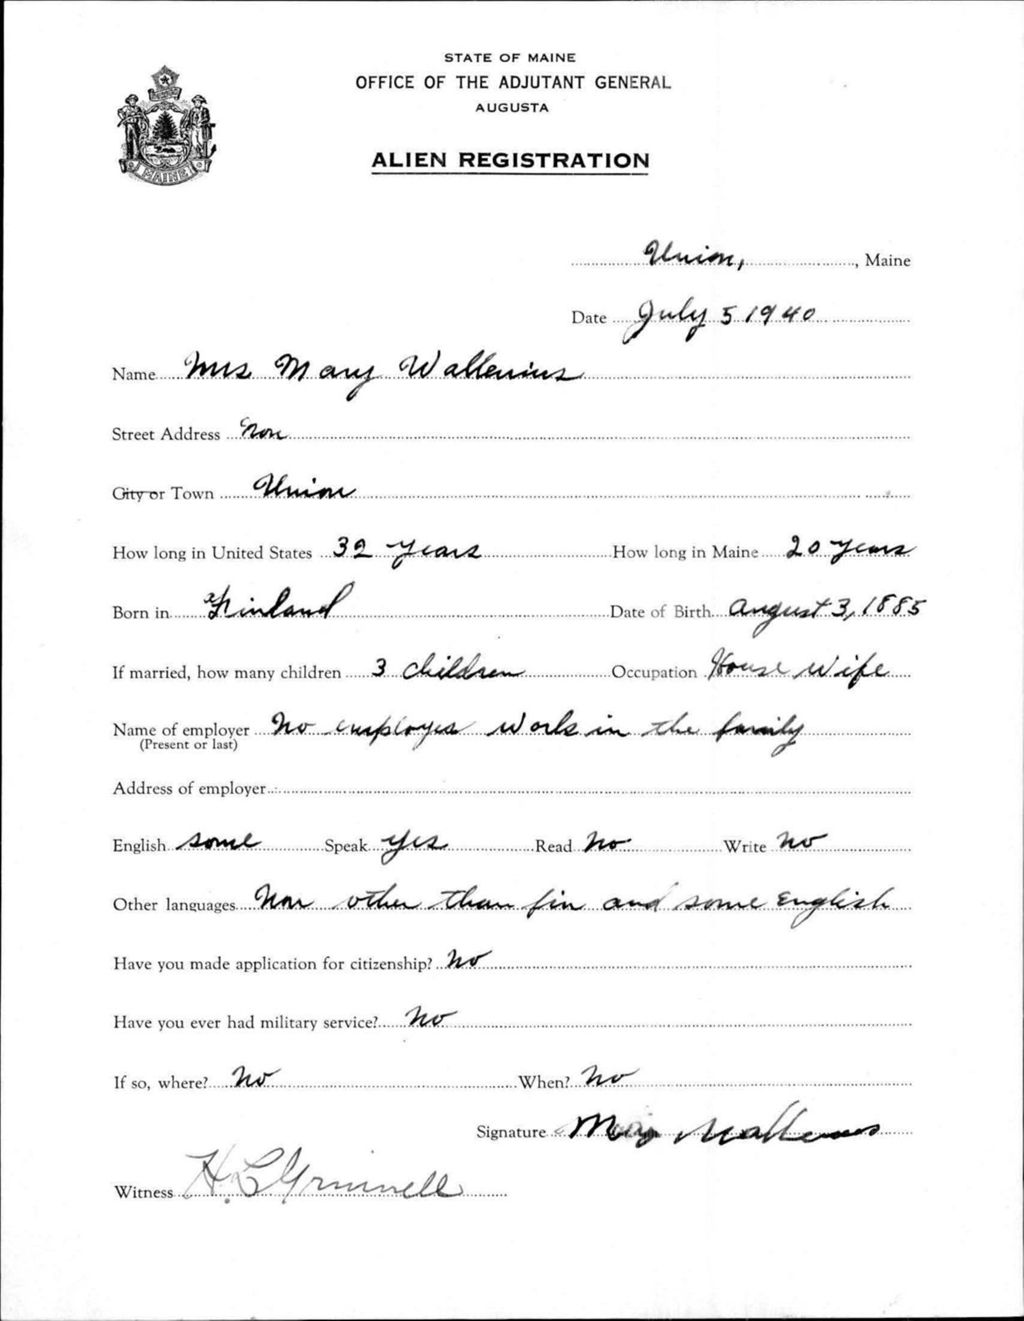 STATE OF MAINE
OFFICE OF THE ADJUTANT GENERAL
AUGUSTA
MAINE
ALIEN REGISTRATION
Union, , Maine
Date July 5 1940
Name Mrs Mary Wallenius
Street Address Non
City or Town Union
How long in United States 32 years How long in Maine 20 years
Born in Finland Date of Birth August 3, 1885
If married, how many children 3 children Occupation House wife
Name of employer No employes work in the family
(Present or last)
Address of employer
English some Speak yes Read No Write No
Other languages Non other than fin and some English
Have you made application for citizenship? No
Have you ever had military service? No
If so, where? No When? No
Signature Mary Wallenius
Witness H. L. Grinnell